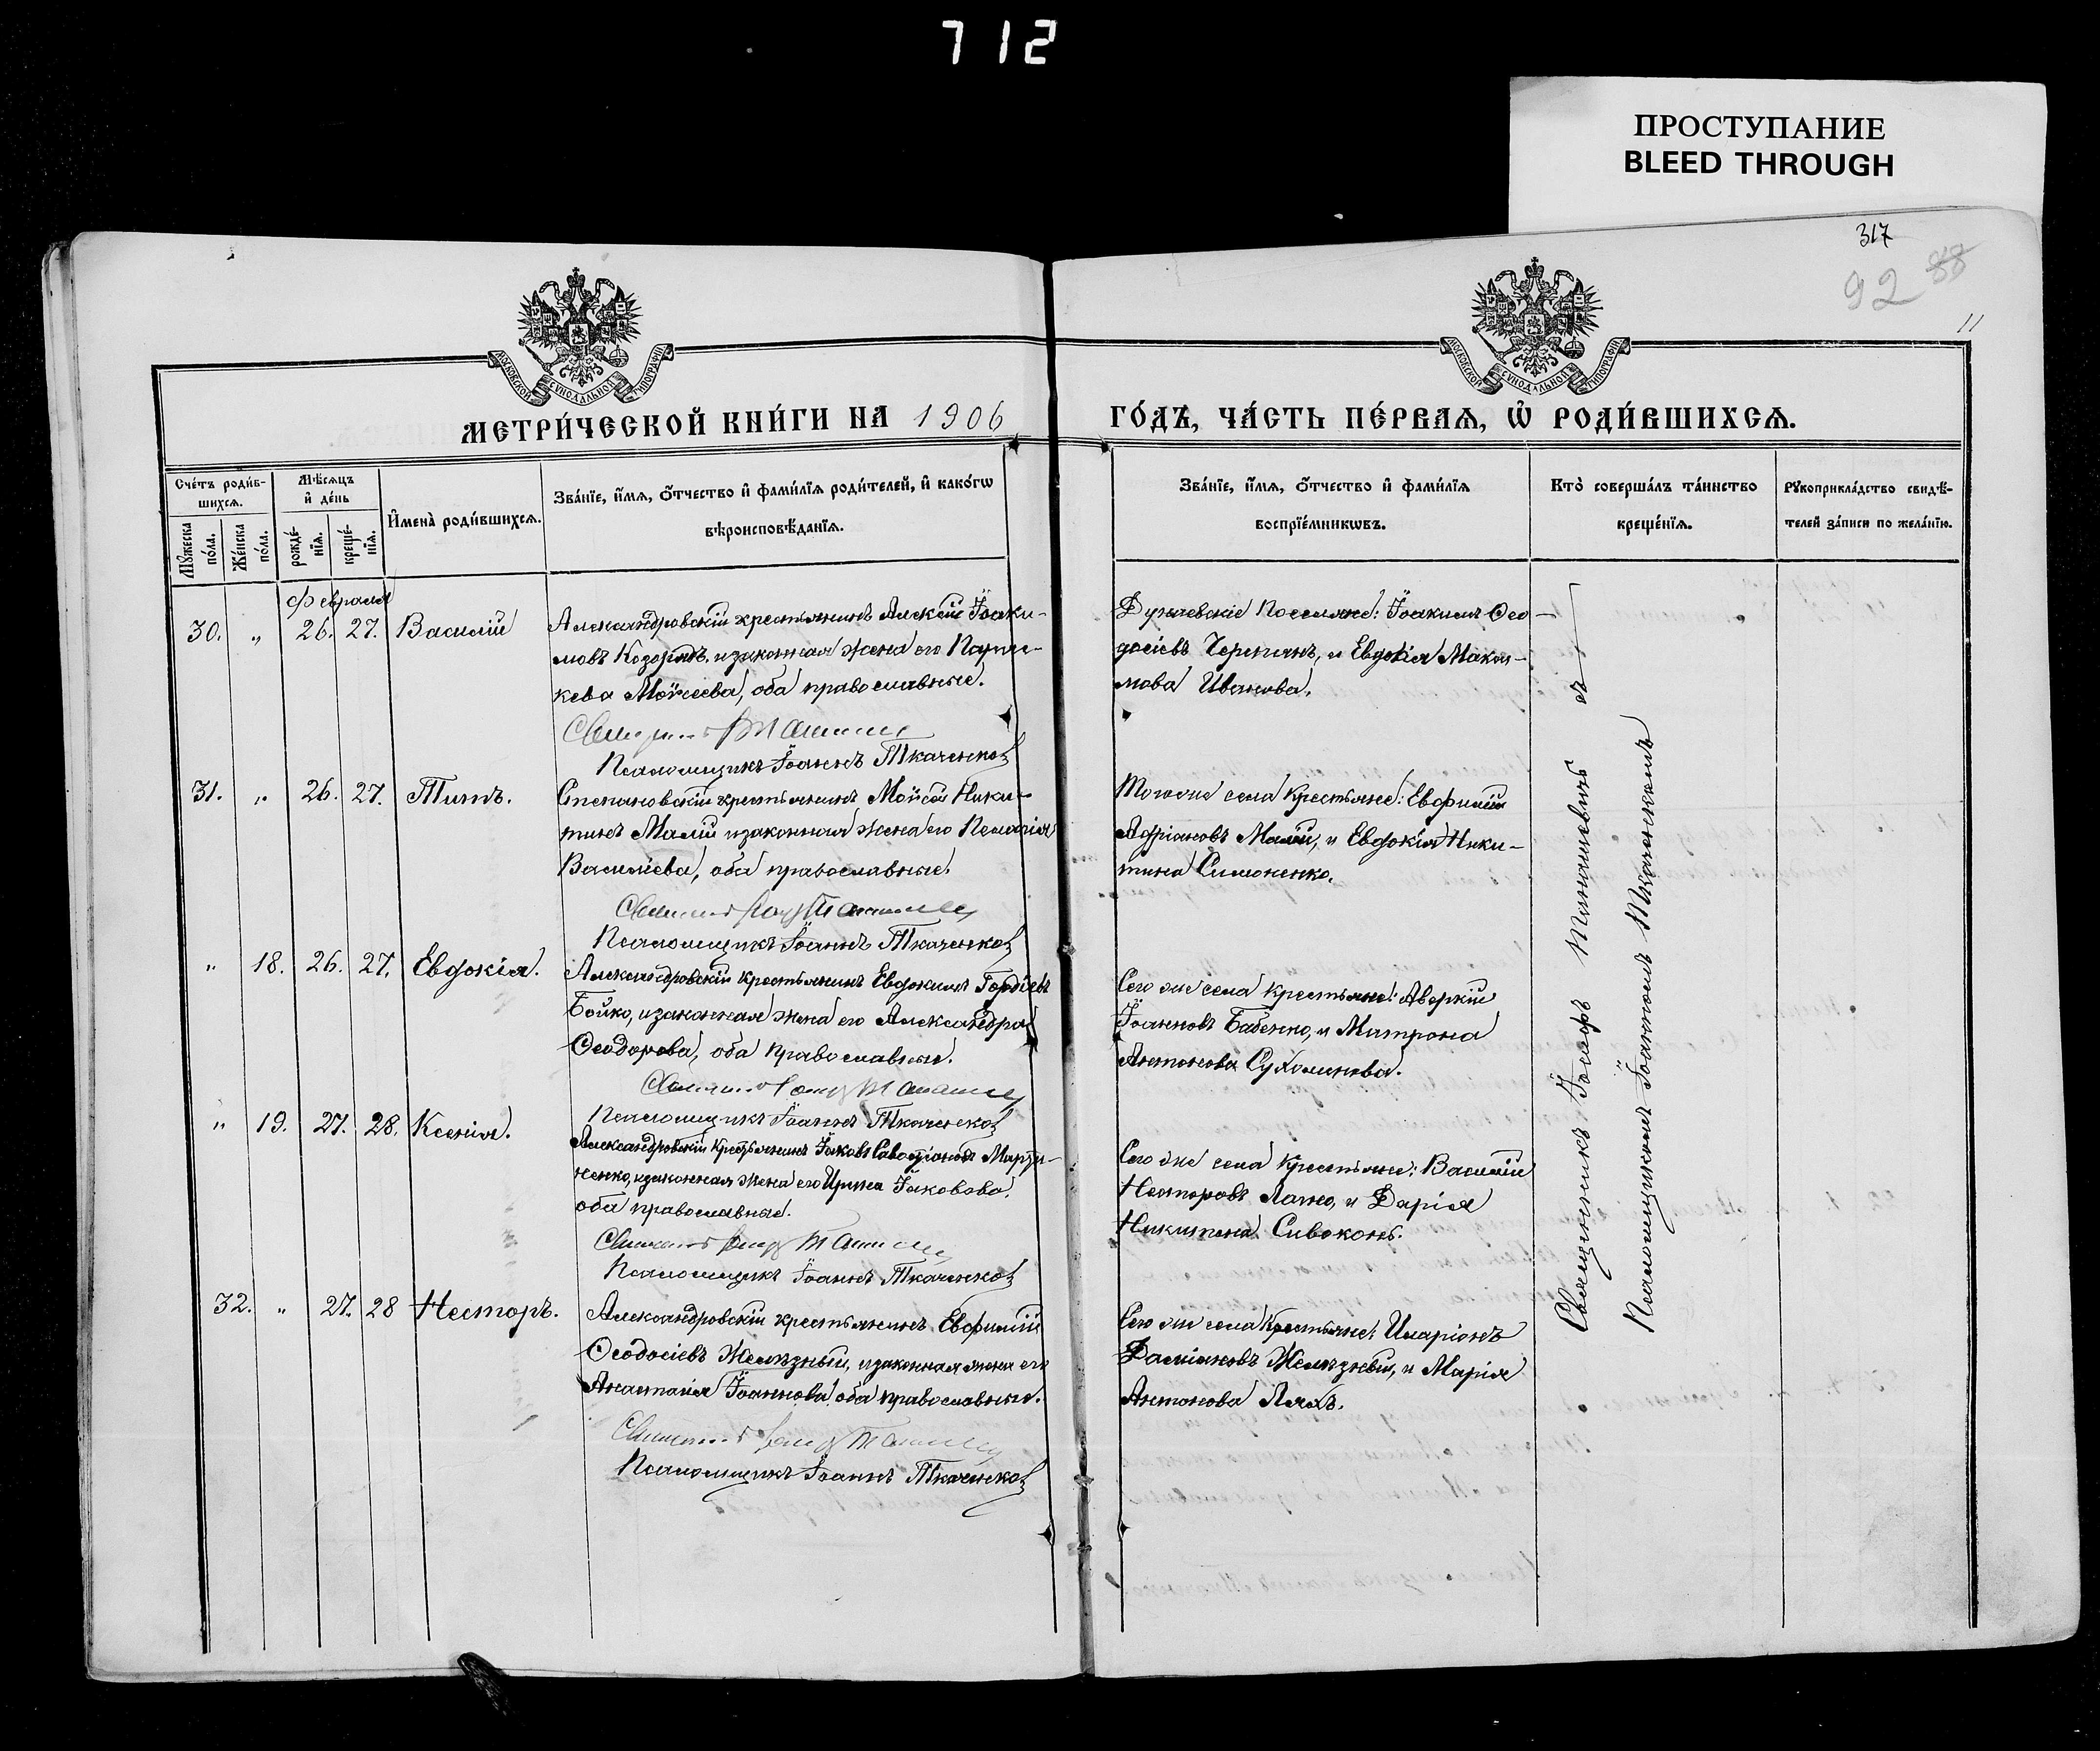 712
ПРОСТУПАНИЕ
BLEED THROUGH
317
92 88
11
МОСКОВСКОЙ СѴНОДАЛЬНОЙ ТИПОГРАФІИ
МОСКОВСКОЙ СѴНОДАЛЬНОЙ ТИПОГРАФІИ
МЕТРИ́ЧЕСКОЙ КНИ́ГИ НА 1906 ГО́ДЪ, ЧА́СТЬ ПЕ́РВАѦ, Ѡ҆ РОДИ́ВШИХСѦ.
Сче́тъ роди́в-
шихсѧ.
Мꙋжеска по́ла.
Же́нска по́ла.
Мѣ́сѧцъ
и҆ де́нь
рожде́-
нїѧ.
креще́-
нїѧ.
И҆мена̀ роди́вшихсѧ.
Зва́нїе, и҆́мѧ, ѻ҆́тчество и҆ фами́лїѧ роди́телей, и҆ како́гѡ
вѣроисповѣ́данїѧ.
Зва́нїе, и҆́мѧ, ѻ҆́тчество и҆ фами́лїѧ
воспрїе́мникѡвъ.
Кто̀ соверша́лъ та́инство
креще́нїѧ.
Рꙋкоприкла́дство свидѣ́-
телей за́писи по жела́нїю.
Февраля
30. „ 26. 27. Василій
Александровскій крестьянинъ Алексій Іоаки-
мовъ Козоризъ, и законная жена его Параске-
кева Моѵсеева, оба православные.
Псаломщикъ Іоаннъ Ткаченко
Дунаевскіе поселяне: Іоакимъ Ѳео-
досіевъ Черепанъ, и Евдокія Маки-
мова Иванова.
31. „ 26. 27. Титъ.
Степановскій крестьянинъ Моѵсей Ники-
тинъ Малій и законная жена его Пелагія
Василіева, оба православные.
Псаломщикъ Іоаннъ Ткаченко
Того же села крестьяне: Евфимій
Адріановъ Малій, и Евдокія Ники-
тина Симоненко.
„ 18. 26. 27. Евдокія.
Александровскій крестьянинъ Евдокимъ Гордіевъ
Бойко, и законная жена его Александра
Ѳеодорова, оба православные.
Псаломщикъ Іоаннъ Ткаченко
Сего же села крестьяне: Аверкій
Іоанновъ Бабенко, и Матрона
Антонова Сухоминова.
„ 19. 27. 28. Ксенія.
Александровскій крестьянинъ Іаковъ Савостіановъ Марты-
ненко, и законная жена его Ирина Іаковова,
оба православные.
Псаломщикъ Іоаннъ Ткаченко
Сего же села крестьяне: Василій
Несторовъ Лахно, и Дарія
Никитина Сивоконь.
32. „ 27. 28 Несторъ.
Александровскій крестьянинъ Евфимій
Ѳеодосіевъ Желѣзный, и законная жена его
Анастасія Іоаннова, оба православные.
Псаломщикъ Іоаннъ Ткаченко
Сего же села крестьяне: Иларіонъ
Даміановъ Желѣзный, и Марія
Антонова Ляхъ.
Священникъ Іосифъ Танашевичъ съ
Псаломщикомъ Іоанномъ Ткаченкомъ